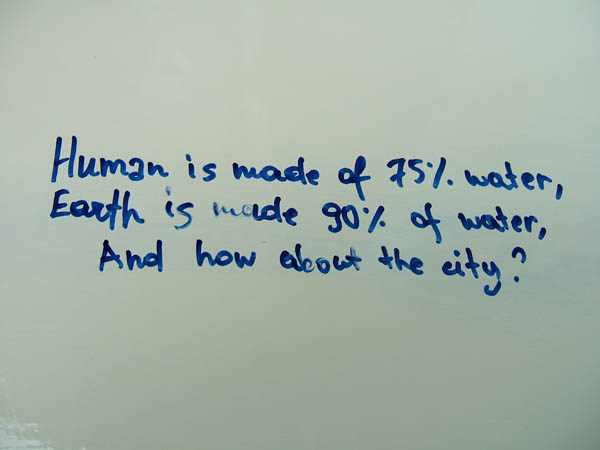 Human is made of 75% water,
Earth is made 90% of water,
And how about the city?